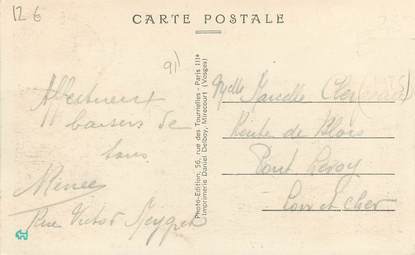 12 6
CARTE POSTALE
91
Affectueux
baisers de
tous
Rue Victor
Photo-Edition, 56, rue des Tournelles - Paris IIIe
Imprimerie Daniel Delboy, Mirecourt (Vosges)
Mdlle Marcelle
Route de Blois
Pont Levoy
Loir et Cher